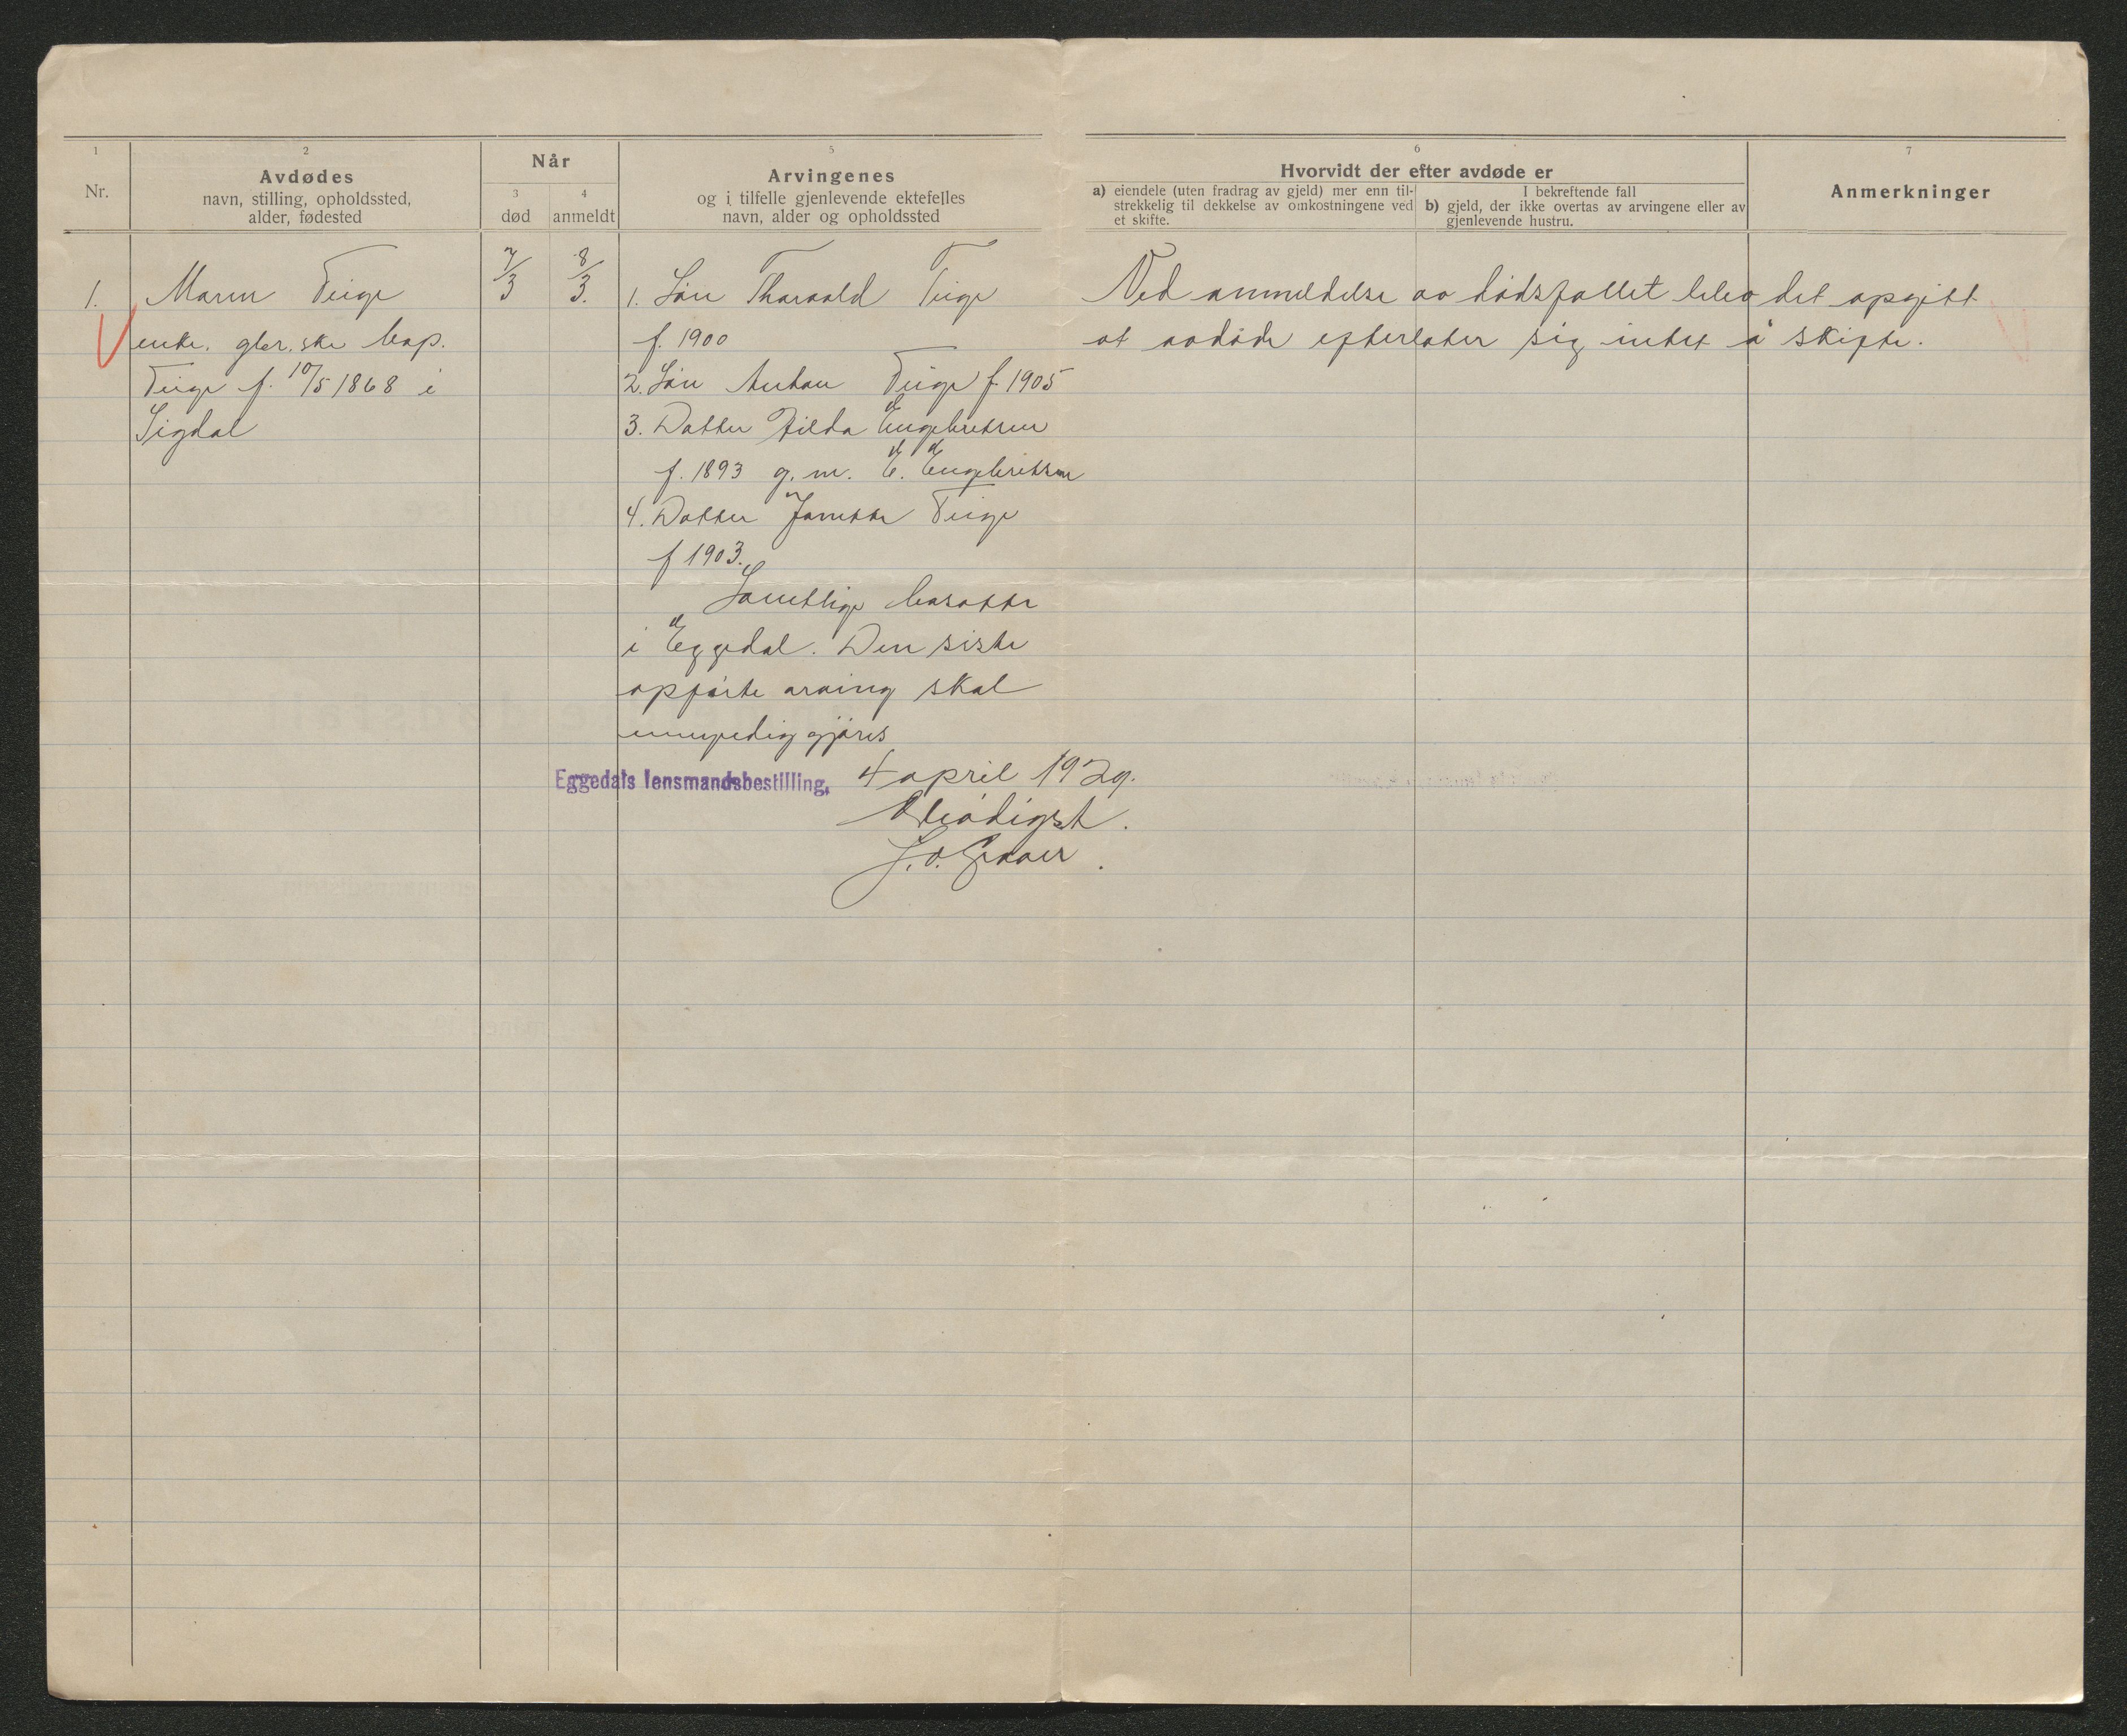 1
2
Avdødes
navn, stilling, opholdssted,
alder, fødested
Nr.
Når
3
død
4
anmeldt
5
Arvingenes
og i tilfelle gjenlevende ektefelles
navn, alder og opholdssted
6
Hvorvidt der efter avdøde er
a) eiendele (uten fradrag av gjeld) mer enn til-
strekkelig til dekkelse av omkostningene ved
et skifte.
I bekreftende fall
b) gjeld, der ikke overtas av arvingene eller av
gjenlevende hustru.
7
Anmerkninger
1.
Maren Teige
enke.
Teige f. 10/5 1868 i
Sigdal
7/3
8/3.
1. Søn Thorvald Teige
f. 1900
2. Søn Anton Teige f. 1905
3. Datter Hilda Engebretsen
f. 1893 g. m. E. Engebretsen
4. Datter Janette Teige
f 1903.
Samtlige bosatte
i Eggedal. Den siste
opførte arving skal
umyndiggjøres
Ved anmeldelse av dødsfallet blev det opgitt
at avdøde efterlater sig intet å skifte.
Eggedals lensmandsbestilling, 4 april 1929.
Ærbødigst.